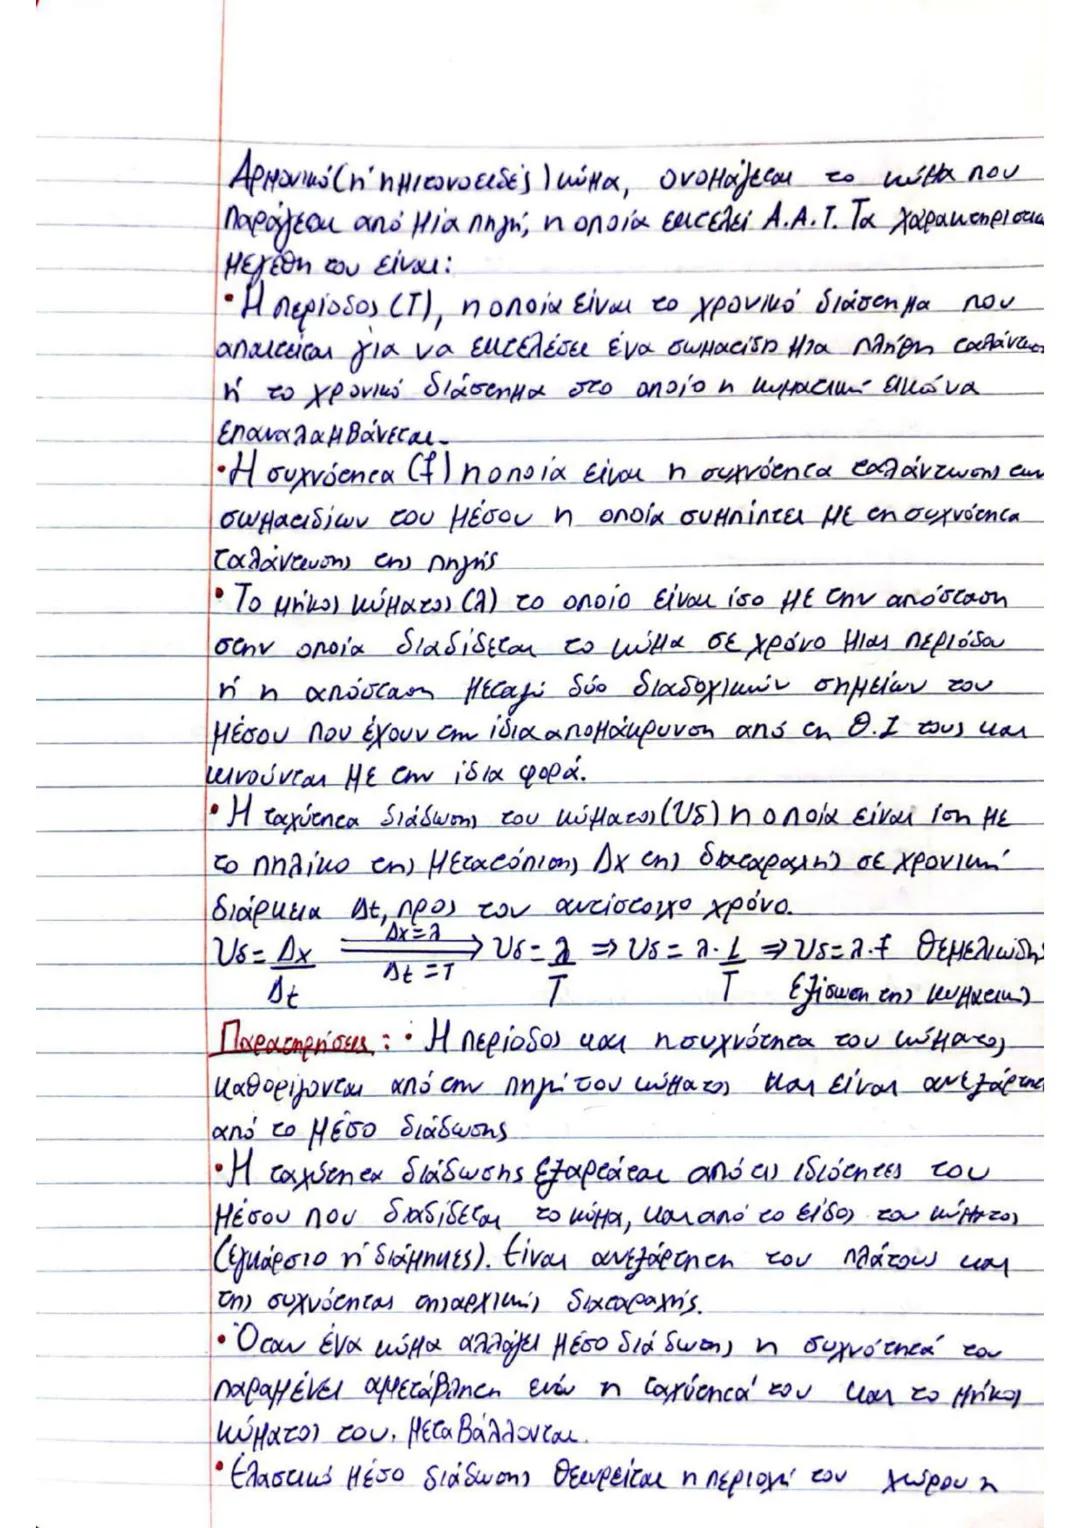 Αρμονικό (ή ημιτονοειδές) κύμα, ονομάζεται το κύμα που
παράγεται από μία πηγή, η οποία εκτελεί Α.Α.Τ. Τα χαρακτηριστικά
μεγέθη του είναι:
• Η περίοδος (Τ), η οποία είναι το χρονικό διάστημα που
απαιτείται για να εκτελέσει ένα σωματίδιο μια πλήρη ταλάντωση
ή το χρονικό διάστημα στο οποίο η κυματική εικόνα
επαναλαμβάνεται.
• Η συχνότητα (f) η οποία είναι η συχνότητα ταλάντωσης των
σωματιδίων του μέσου η οποία συμπίπτει με τη συχνότητα
ταλάντωσης της πηγής
• Το μήκος κύματος (λ) το οποίο είναι ίσο με την απόσταση
στην οποία διαδίδεται το κύμα σε χρόνο μιας περιόδου
ή η απόσταση μεταξύ δύο διαδοχικών σημείων του
μέσου που έχουν την ίδια απομάκρυνση από τη Θ.Ι τους και
κινούνται με την ίδια φορά.
• Η ταχύτητα διάδωσης του κύματος (υδ) η οποία είναι ίση με
το πηλίκο της μετατόπισης Δx της διαταραχής σε χρονική
διάρκεια Δt, προς τον αντίστοιχο χρόνο.
υδ = Δx/Δt ⟹ (Δx = λ, Δt = T) υδ = λ/T ⇒ υδ = λ · 1/T ⇒ υδ = λ · f Θεμελιώδης
εξίσωση της κυματικής
Παρατηρήσεις: • Η περίοδος και η συχνότητα του κύματος
καθορίζονται από την πηγή του κύματος και είναι ανεξάρτητες
από το μέσο διάδωσης
• Η ταχύτητα διάδωσης εξαρτάται από τις ιδιότητες του
μέσου που διαδίδεται το κύμα, και από το είδος του κύματος
(εγκάρσιο ή διάμηκες). Είναι ανεξάρτητη του πλάτους και
της συχνότητας της αρχικής διαταραχής.
• Όταν ένα κύμα αλλάζει μέσο διάδωσης η συχνότητά του
παραμένει αμετάβλητη ενώ η ταχύτητά του και το μήκος
κύματος του, μεταβάλλονται.
• Ελαστικό μέσο διάδωσης θεωρείται η περιοχή του χώρου η